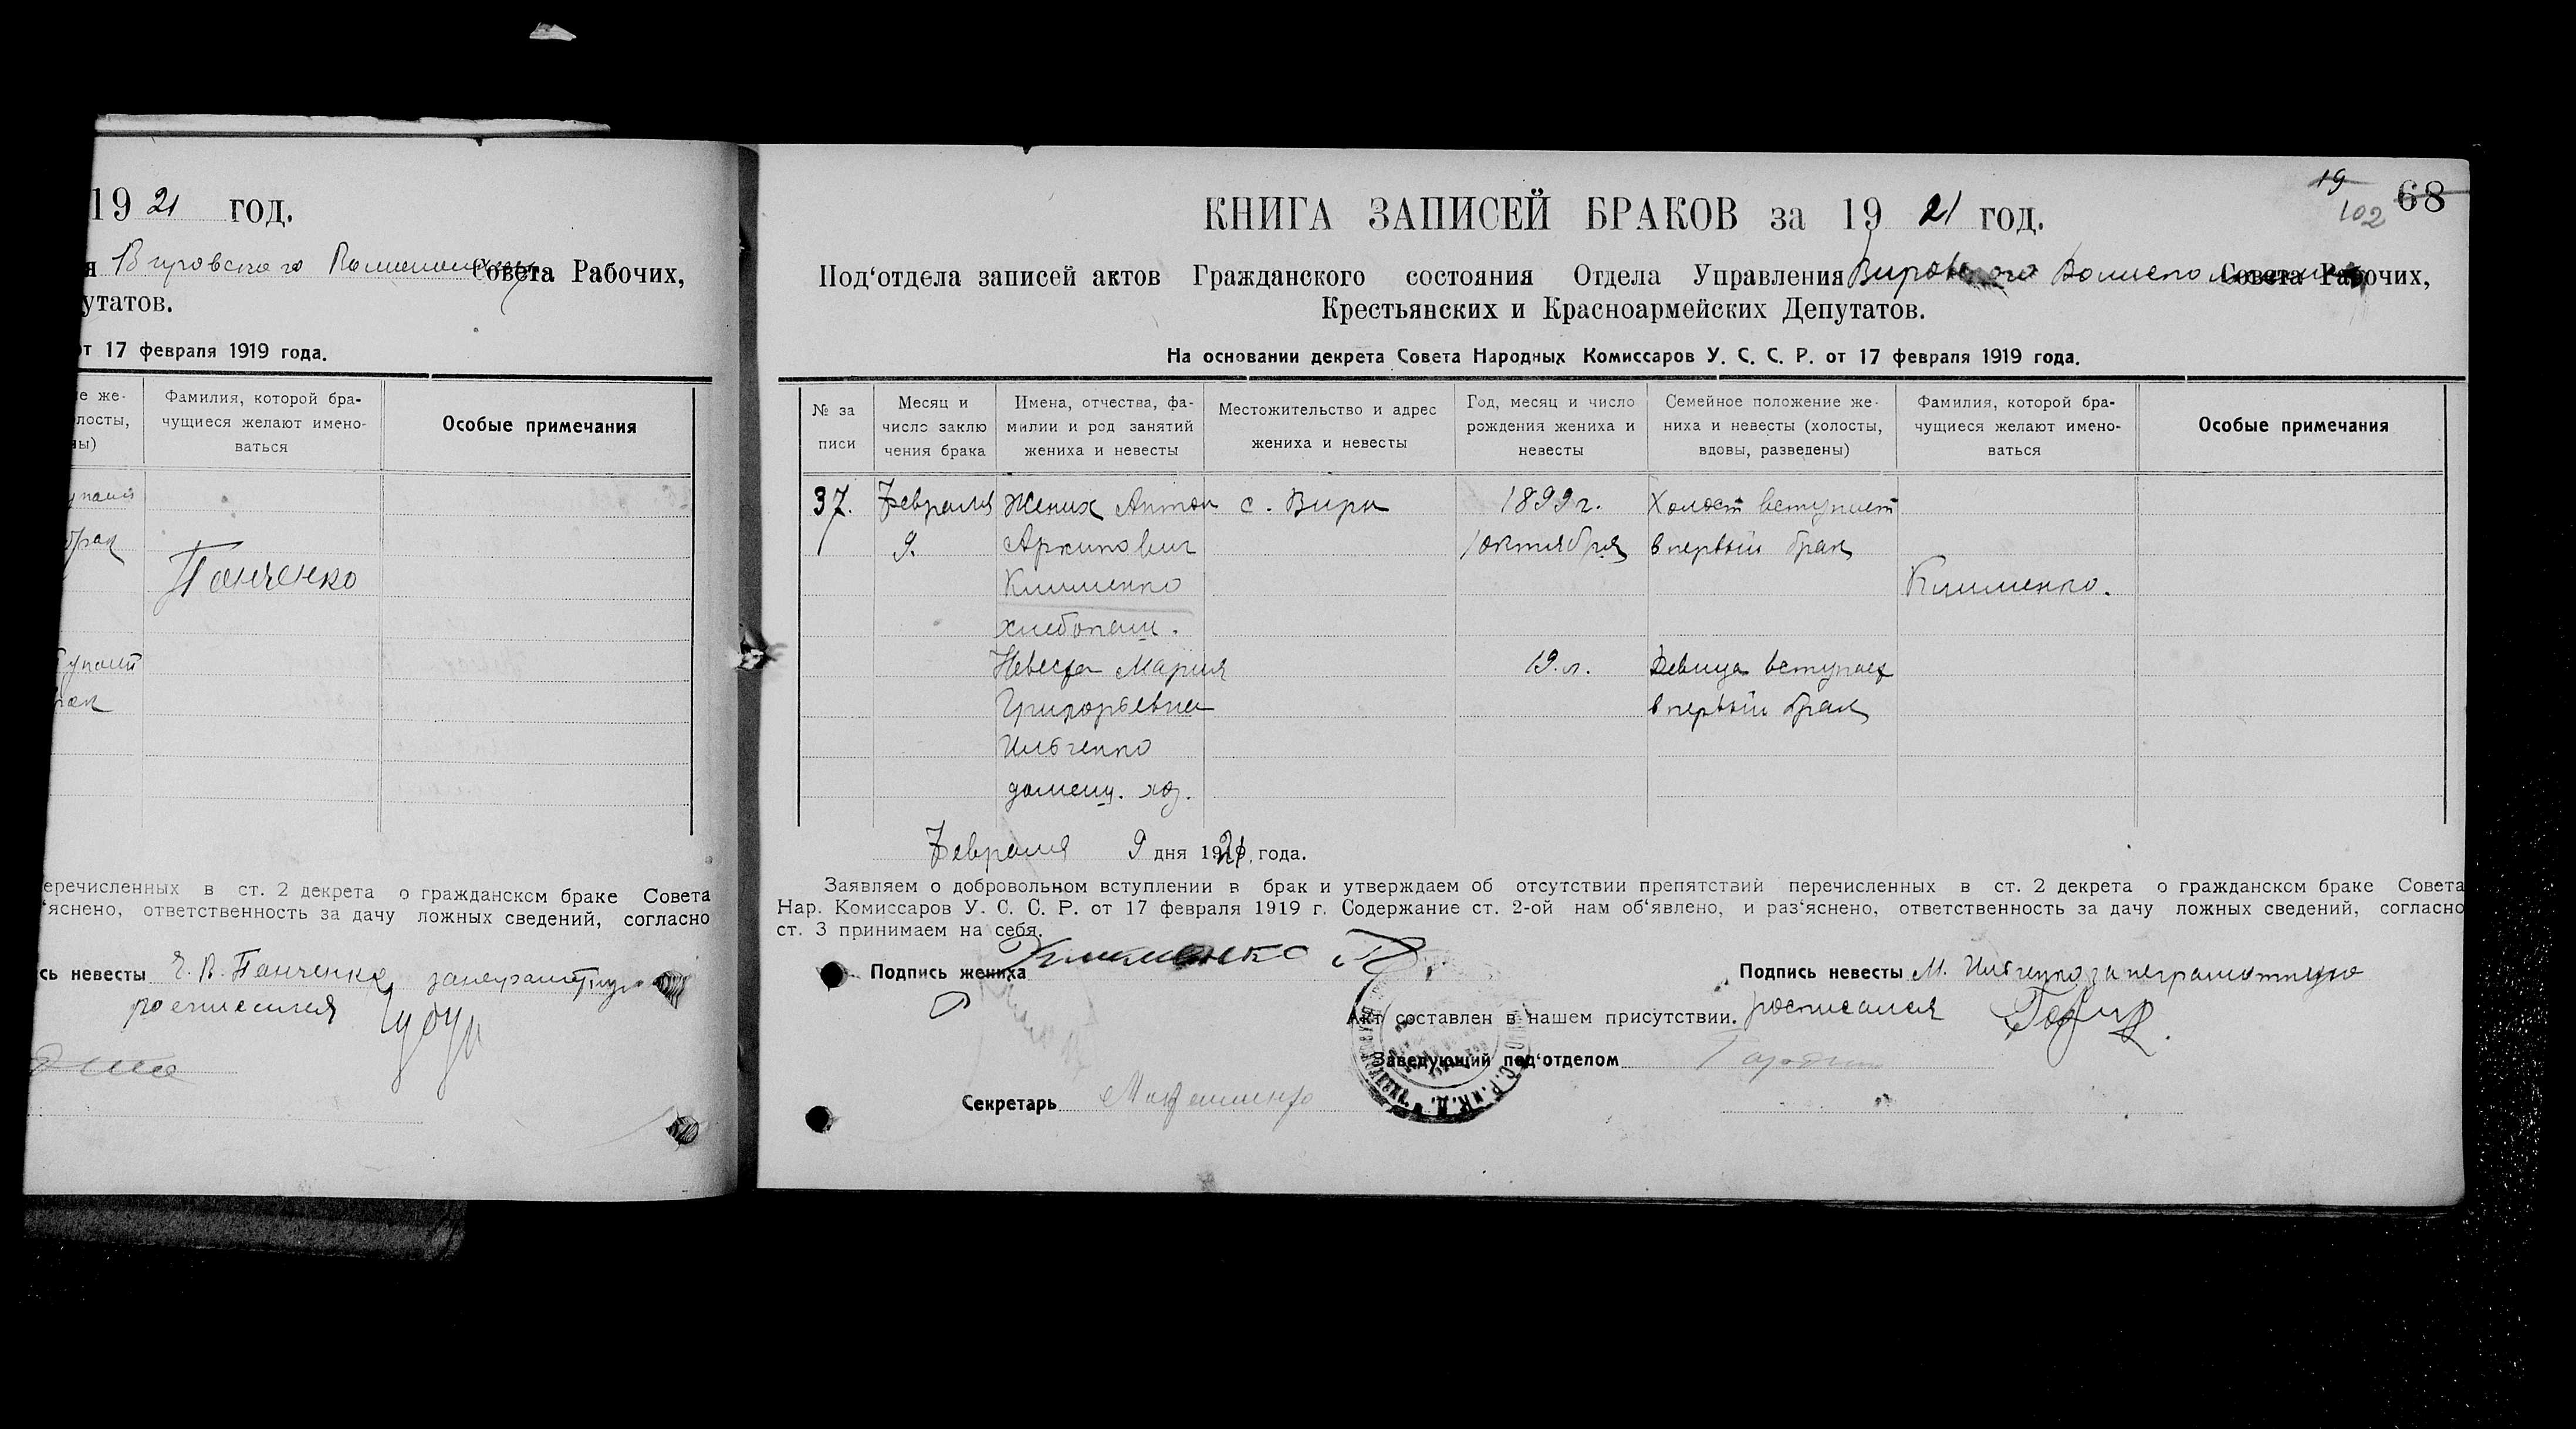 19 21 год.
Вировского Волисполкому Совета Рабочих,
утатов.
от 17 февраля 1919 года.
Фамилия, которой бра-
чущиеся желают имено-
ваться
Особые примечания
Панченко
еречисленных в ст. 2 декрета о гражданском браке Совета
‘яснено, ответственность за дачу ложных сведений, согласно
сь невесты Панченко
росписался
19
102
68
КНИГА ЗАПИСЕЙ БРАКОВ за 19 21 год.
Под‘отдела записей актов Гражданского состояния Отдела Управления Вировского Совета Рабочих,
Крестьянских и Красноармейских Депутатов.
На основании декрета Совета Народных Комиссаров У. С. С. Р. от 17 февраля 1919 года.
№ за
писи
Месяц и
число заклю
чения брака
Имена, отчества, фа-
милии и род занятий
жениха и невесты
Местожительство и адрес
жениха и невесты
Год, месяц и число
рождения жениха и
невесты
Семейное положение же-
ниха и невесты (холосты,
вдовы, разведены)
Фамилия, которой бра-
чущиеся желают имено-
ваться
Особые примечания
37. Февраля Жених Антон с. Вири 1899 г. Холост вступает
9. Архипович 1 октября в первый брак
Клименко Клименко.
хлебопаш.
Невеста Мария 19. л. Девица вступает
Григорьевна в первый брак
Ильченко
домашн. хоз.
Февраля 9 дня 1921 года.
Заявляем о добровольном вступлении в брак и утверждаем об отсутствии препятствий перечисленных в ст. 2 декрета о гражданском браке Совета
Нар. Комиссаров У. С. С. Р. от 17 февраля 1919 г. Содержание ст. 2-ой нам об‘явлено, и раз‘яснено, ответственность за дачу ложных сведений, согласно
ст. 3 принимаем на себя.
Подпись жениха Клименко
Подпись невесты М. Ильченко за неграмотную
Акт составлен в нашем присутствии. росписался
Заведующий под‘отделом
Секретарь